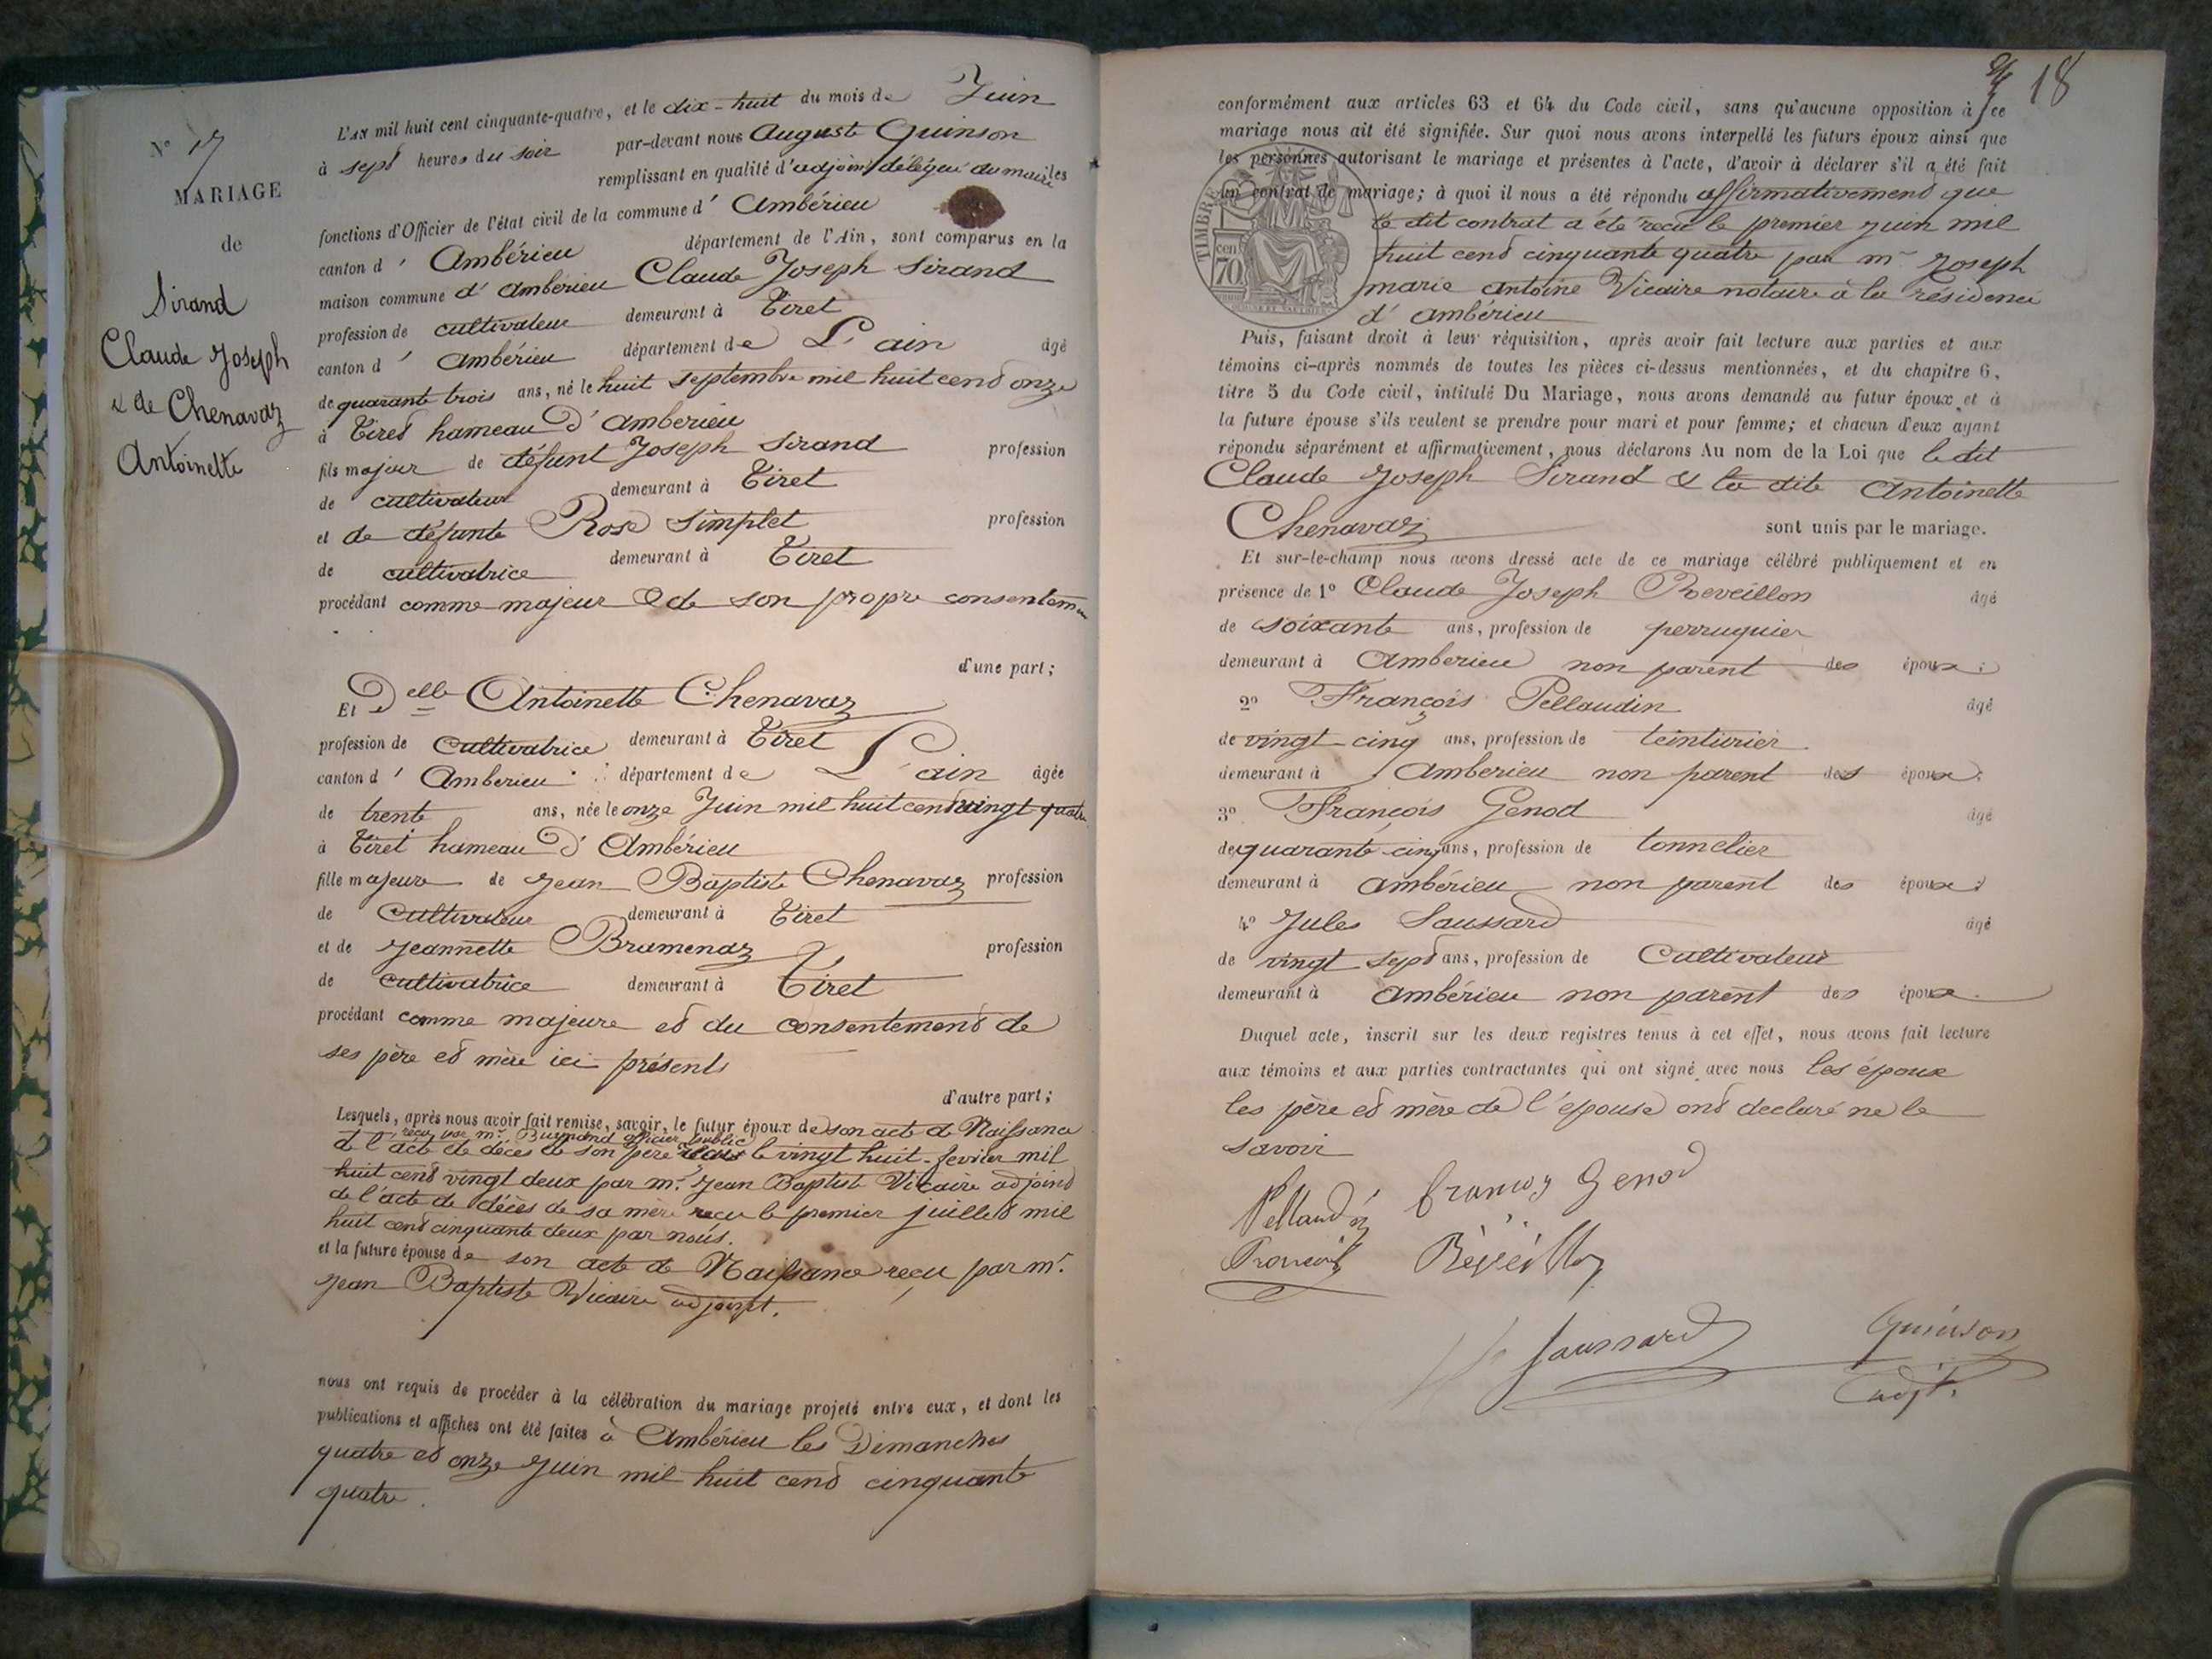 N° 17
MARIAGE
de
Sirand
Claude Joseph
& de Chenavaz
Antoinette
L'AN mil huit cent cinquante-quatre, et le dix-huit du mois de Juin
à sept heures du soir par-devant nous Auguste Quinson
remplissant en qualité d'adjoint délégué du maire les
fonctions d'Officier de l'état civil de la commune d' Ambérieu
canton d' Ambérieu département de l'Ain, sont comparus en la
maison commune d' Ambérieu Claude Joseph Sirand
profession de cultivateur demeurant à Tiret
canton d' Ambérieu département de L'ain âgé
de quarante trois ans, né le huit septembre mil huit cend onze
à Tired hameau D' Amberieu
fils majeur de défunt Joseph Sirand profession
de cultivateur demeurant à Tiret
et de défunte Rose Simplet profession
de cultivatrice demeurant à Tiret
procédant comme majeur & de son propre consentem
d'une part;
Et Delle Antoinette Chenavaz
profession de Cultivatrice demeurant à Tiret
canton d' Amberieu département de L'ain âgée
de trente ans, née le onze Juin mil huit cend vingt quatre
à Tiret hameau D' Ambérieu
fille majeure de Jean Baptiste Chenavaz profession
de Cultivateur demeurant à Tiret
et de Jeannette Bramenaz profession
de Cultivatrice demeurant à Tiret
procédant comme majeure ed du consentemend de
ses père ed mère ici présents
d'autre part;
Lesquels, après nous avoir fait remise, savoir, le futur époux de son acte de Naissance
reçu par mr. officier public
de l'acte de décès de son père le vingt huit fevrier mil
huit cend vingt deux par mr. Jean Baptiste Vicaire adjoind
de l'acte de décès de sa mère reçu le premier juilled mil
huit cend cinquante deux par nous.
et la future épouse de son acte de Naissance reçu par mr.
Jean Baptiste Vicaire adjoint.
nous ont requis de procéder à la célébration du mariage projeté entre eux, et dont les
publications et affiches ont été faites à Ambérieu les Dimanches
quatre ed onze Juin mil huit cend cinquante
quatre.
18
conformément aux articles 63 et 64 du Code civil, sans qu'aucune opposition à ce
mariage nous ait été signifiée. Sur quoi nous avons interpellé les futurs époux ainsi que
les personnes autorisant le mariage et présentes à l'acte, d'avoir à déclarer s'il a été fait
un contrat de mariage; à quoi il nous a été répondu affirmativemend que
le dit contrat a été reçu le premier juin mil
huit cend cinquante quatre par mr Joseph
marie antoine Vicaire notaire à la résidence
d' ambérieu
TIMBRE
cen
70
Puis, faisant droit à leur réquisition, après avoir fait lecture aux parties et aux
témoins ci-après nommés de toutes les pièces ci-dessus mentionnées, et du chapitre 6,
titre 5 du Code civil, intitulé Du Mariage, nous avons demandé au futur époux et à
la future épouse s'ils veulent se prendre pour mari et pour femme; et chacun d'eux ayant
répondu séparément et affirmativement, nous déclarons Au nom de la Loi que le dit
Claude Joseph Sirand & la dite Antoinette
Chenavaz sont unis par le mariage.
Et sur-le-champ nous avons dressé acte de ce mariage célébré publiquement et en
présence de 1° Claude Joseph Reveillon âgé
de soixante ans, profession de perruquier
demeurant à Amberieu non parent des époux;
2° François Pellaudin âgé
de vingt-cinq ans, profession de teinturier
demeurant à Amberieu non parent des époux;
3° François Genod âgé
de quarante-cinq ans, profession de tonnelier
demeurant à ambérieu non parent des époux;
4° Jules Saussard âgé
de vingt sept ans, profession de Cultivateur
demeurant à ambérieu non parent des époux.
Duquel acte, inscrit sur les deux registres tenus à cet effet, nous avons fait lecture
aux témoins et aux parties contractantes qui ont signé avec nous les époux
les père ed mère de l'epouse ond declaré ne le
savoir
Pellaudin francois Genod
Francois Réveillon
Saussard Quinson
adjt.